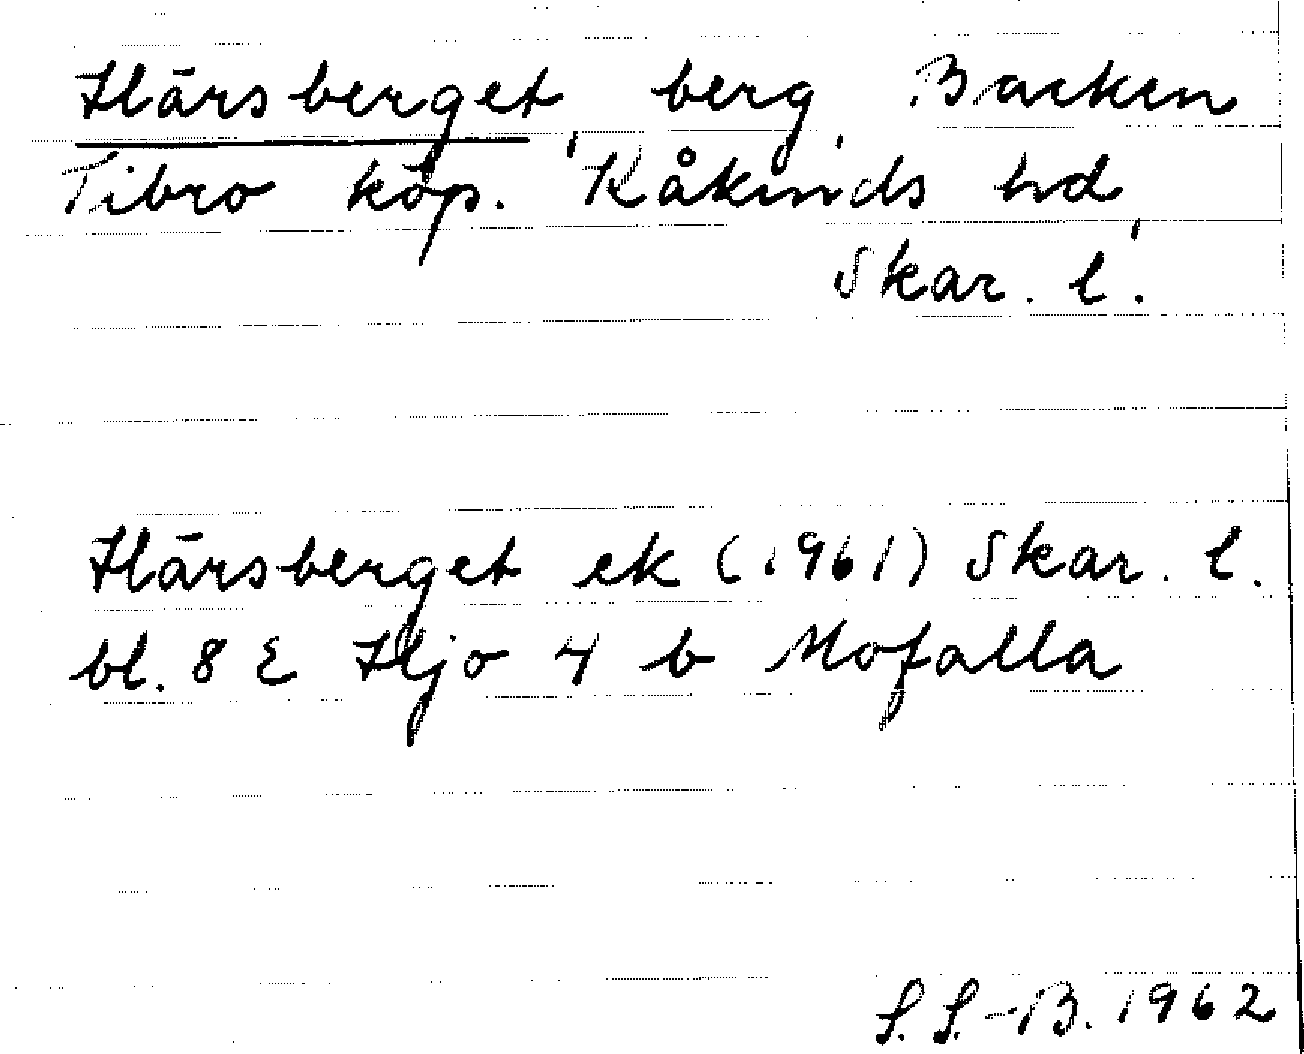 Härsberget, berg, Backen
Tibro köp. Kåkinds hd,
Skar. l.
Härsberget ek (1961) Skar. l.
bl. 8 E Hjo 4 b Mofalla
S. S.-B. 1962